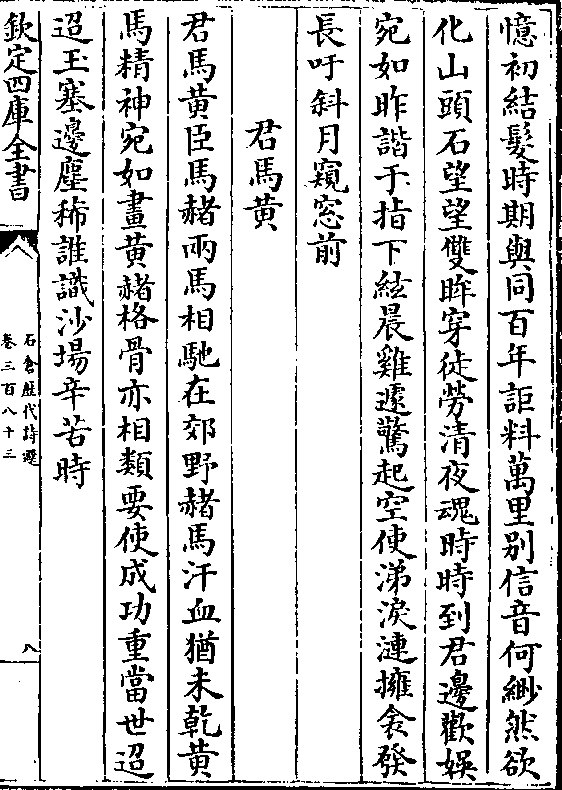 憶初結髮時期與同百年詎料萬里别信音何緲然欲
化山頭石望望雙眸穿徒勞清夜魂時時到君邊歡娛
宛如昨諧于指下絃晨雞遽驚起空使涕淚漣擁衾發
長吁斜月窺窓前
君馬黄
君馬黄臣馬赭兩馬相馳在郊野赭馬汗血猶未乾黄
馬精神宛如畫黄赭格骨亦相類要使成功重當世迢
迢玉塞邊塵稀誰識沙場辛苦時
欽定四庫全書
石倉歷代詩選
卷三百八十三
八